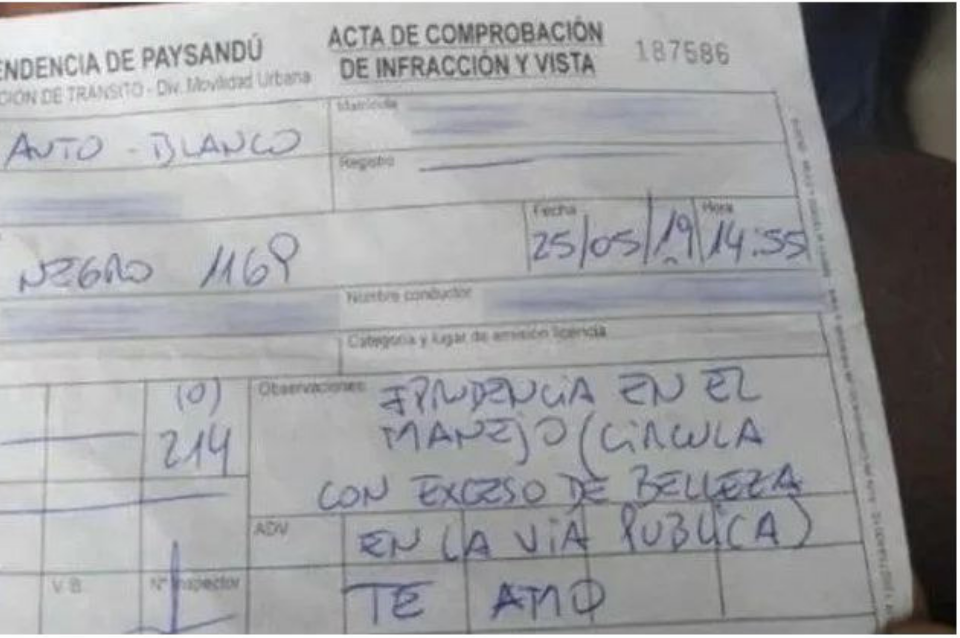 ENDENCIA DE PAYSANDÚ
CIÓN DE TRANSITO - Div. Movilidad Urbana
ACTA DE COMPROBACIÓN
DE INFRACCIÓN Y VISTA
187586
AUTO - BLANCO
Matrícula
Registro
NEGRO 1169
Fecha
25/05/19
Hora
14:55
Nombre conductor
Categoría y lugar de emisión licencia
(0)
214
Observaciones
IPRUDENCIA EN EL
MANEJO (CIRCULA
CON EXCESO DE BELLEZA
EN LA VIA PUBLICA)
TE AMO
ADV
V. B.
Nº Inspector